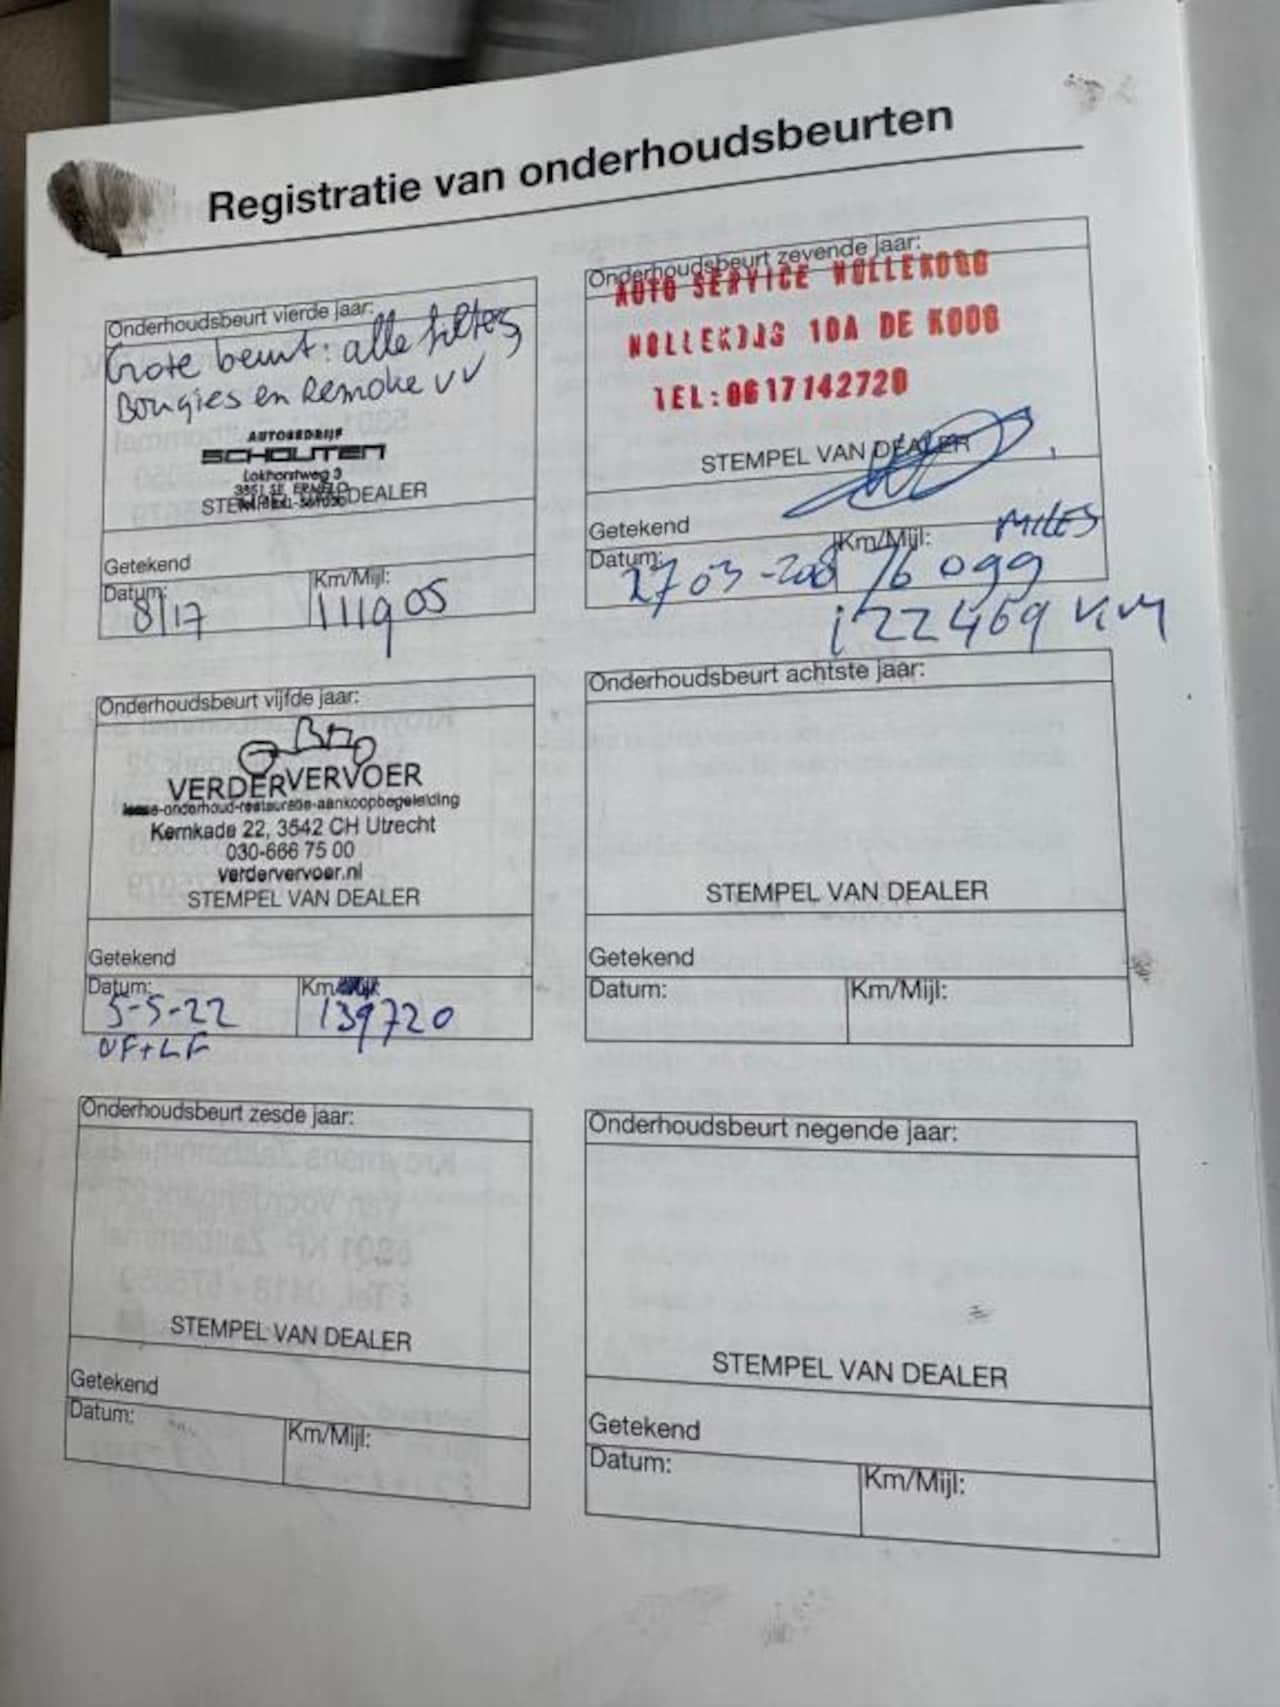 Registratie van onderhoudsbeurten
Onderhoudsbeurt vierde jaar:
Grote beurt: alle filters
Bougies en Remolie VV
AUTOBEDRIJF
SCHOUTEN
Lokhorstweg 3
3851 SE ERMELO
STEMPEL VAN DEALER
Getekend
Datum: Km/Mijl:
8/17 111905
Onderhoudsbeurt vijfde jaar:
VERDERVERVOER
lease-onderhoud-restauratie-aankoopbegeleiding
Kernkade 22, 3542 CH Utrecht
030-666 75 00
verdervervoer.nl
STEMPEL VAN DEALER
Getekend
Datum: Km
5-5-22 139720
Onderhoudsbeurt zesde jaar:
STEMPEL VAN DEALER
Getekend
Datum: Km/Mijl:
Onderhoudsbeurt zevende jaar:
AUTO SERVICE NOLLEKOOG
10A DE KOOG
TEL:0617142720
STEMPEL VAN DEALER
Getekend
MILES
Datum: Km/Mijl:
27 03 - 76 099
122469 KM
Onderhoudsbeurt achtste jaar:
STEMPEL VAN DEALER
Getekend
Datum: Km/Mijl:
Onderhoudsbeurt negende jaar:
STEMPEL VAN DEALER
Getekend
Datum: Km/Mijl: